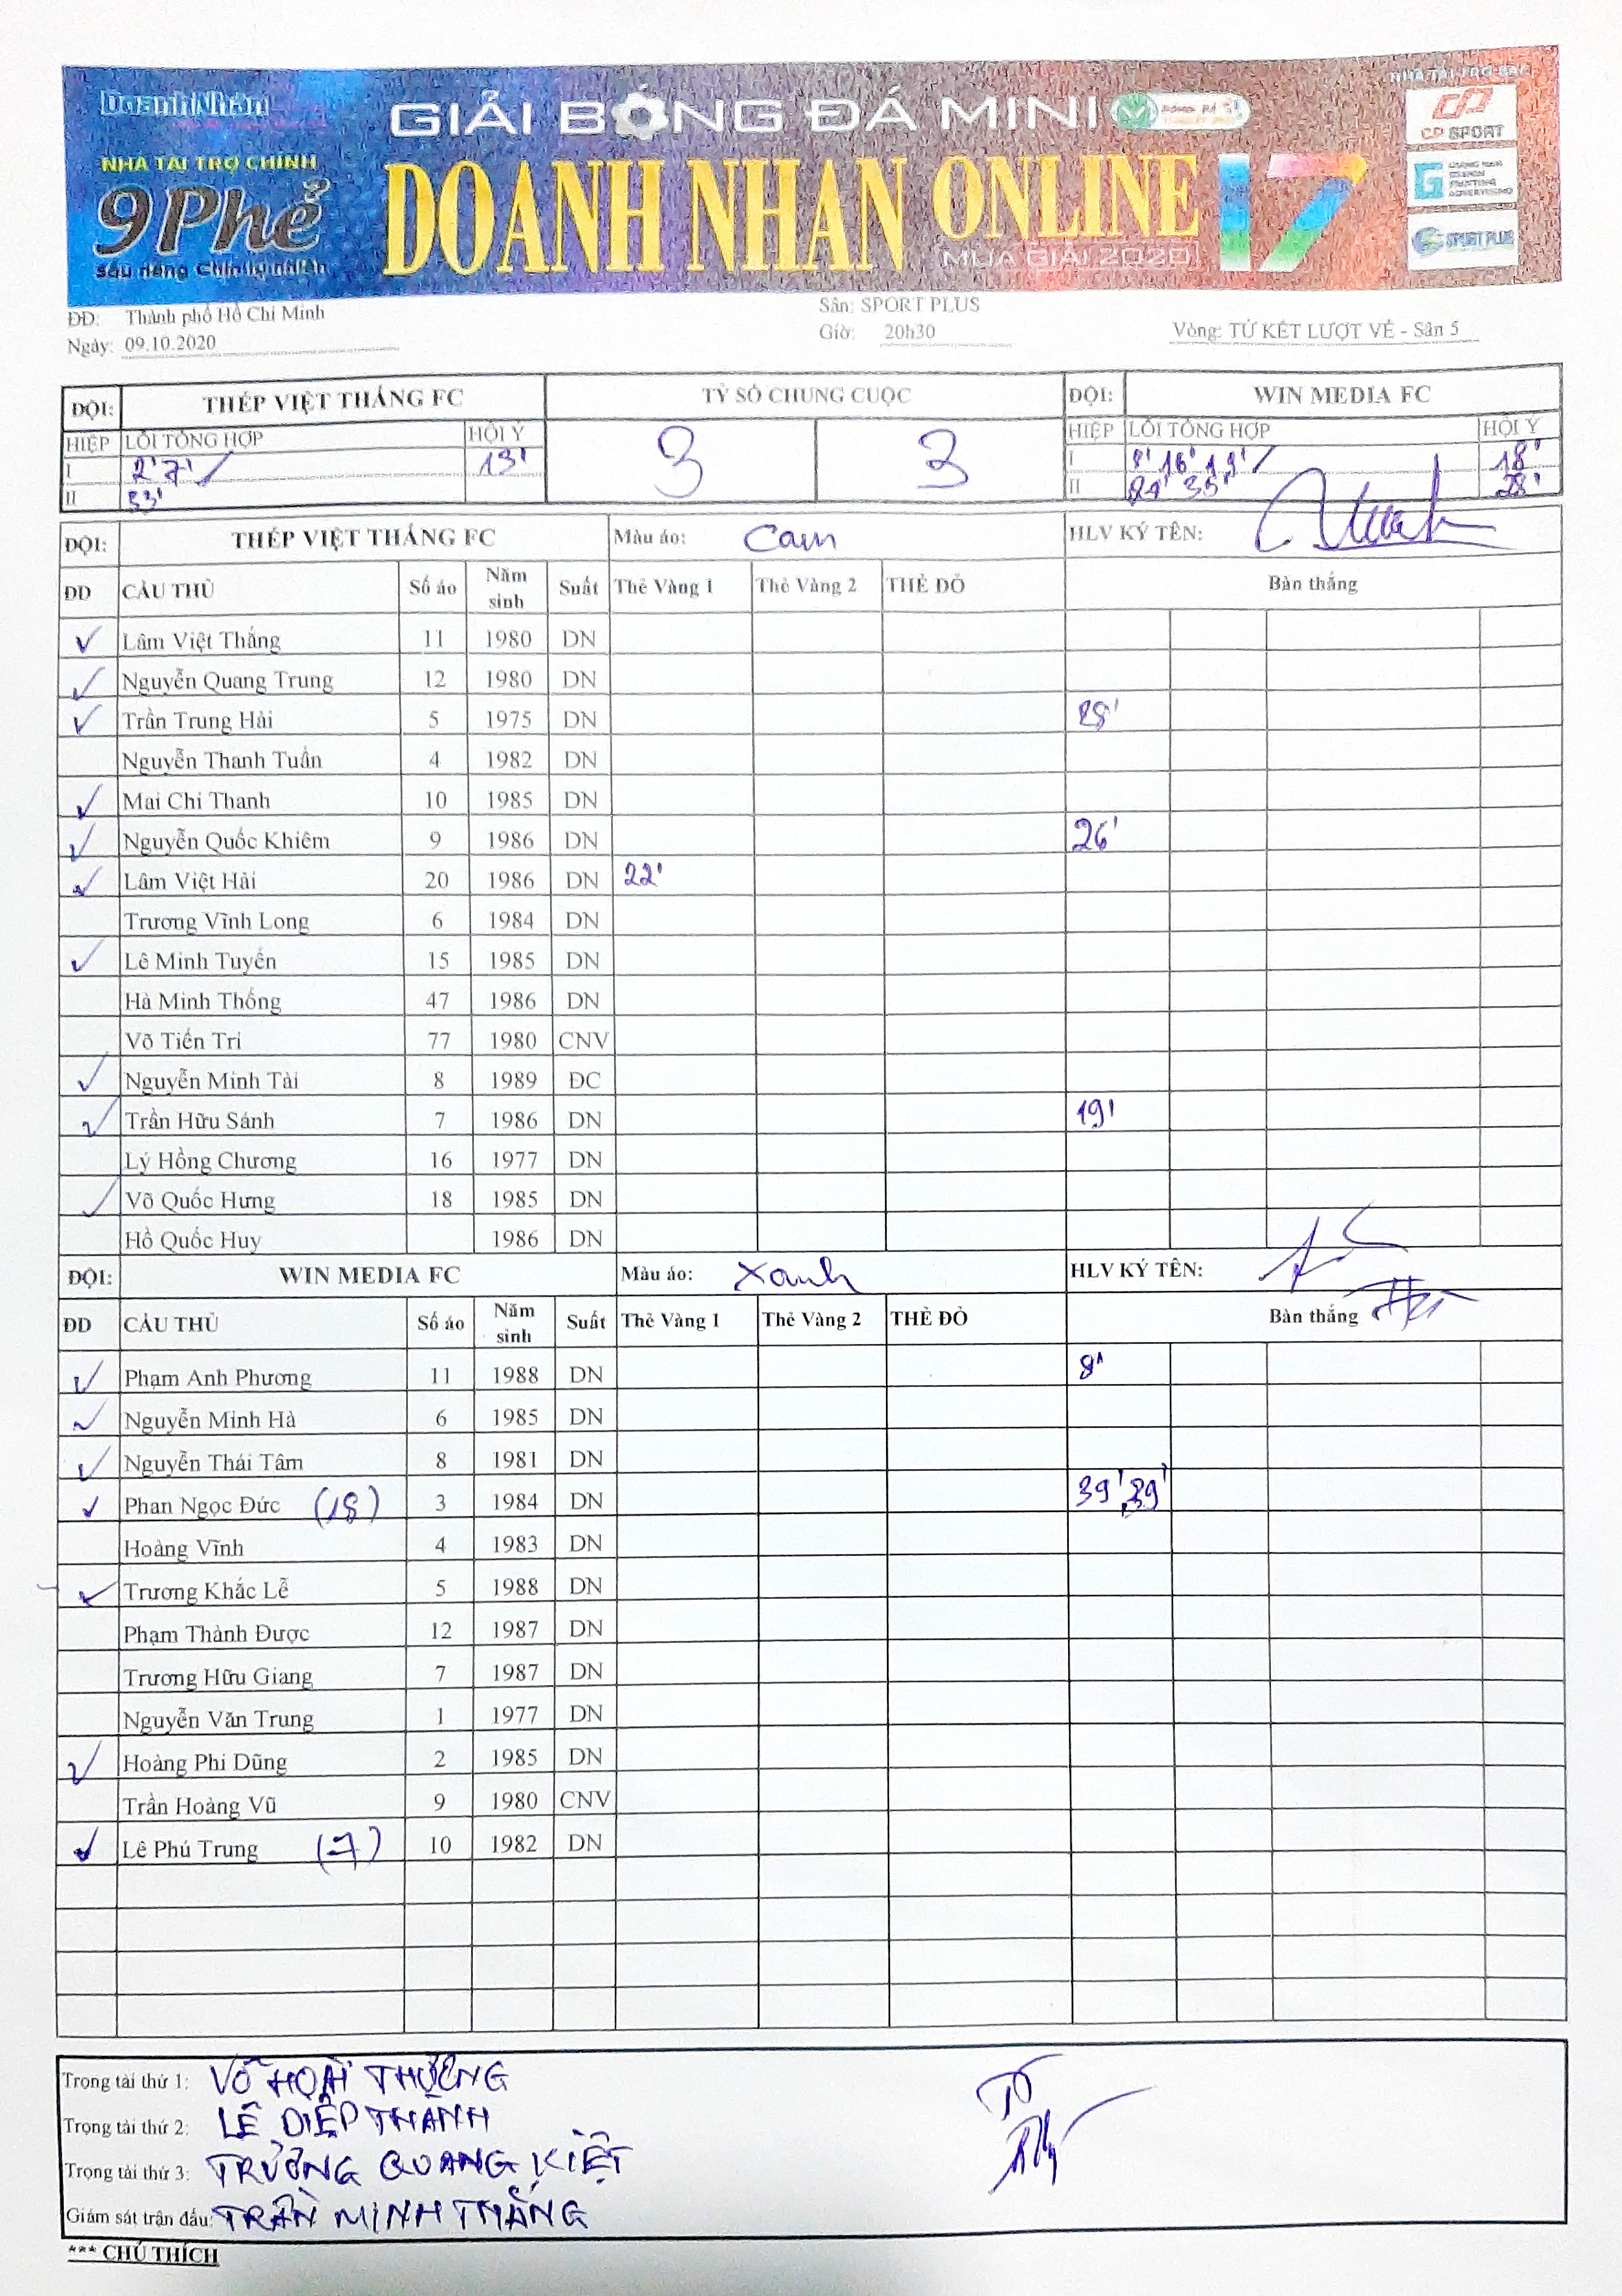 DoanhNhân
NHÀ TÀI TRỢ CHÍNH
9Phê
GIẢI BÓNG ĐÁ MINI
DOANH NHÂN ONLINE 17
MÙA GIẢI 2020
CP SPORT
SPORT PLUS
ĐĐ: Thành phố Hồ Chí Minh
Sân: SPORT PLUS
Ngày: 09.10.2020
Giờ: 20h30
Vòng: TỨ KẾT LƯỢT VỀ - Sân 5
ĐỘI: THÉP VIỆT THẮNG FC TỶ SỐ CHUNG CUỘC ĐỘI: WIN MEDIA FC
HIỆP LỖI TỔNG HỢP HỘI Ý 3 3 HIỆP LỖI TỔNG HỢP HỘI Ý
I 2' 7' / 13' I 8' 16' 19' / 18'
II 33' II 24' 35' 28'
ĐỘI: THÉP VIỆT THẮNG FC Màu áo: Cam HLV KÝ TÊN:
ĐD CẦU THỦ Số áo Năm sinh Suất Thẻ Vàng 1 Thẻ Vàng 2 THẺ ĐỎ Bàn thắng
✓ Lâm Việt Thắng 11 1980 DN
✓ Nguyễn Quang Trung 12 1980 DN
✓ Trần Trung Hải 5 1975 DN
Nguyễn Thanh Tuấn 4 1982 DN
✓ Mai Chí Thanh 10 1985 DN
✓ Nguyễn Quốc Khiêm 9 1986 DN 26'
✓ Lâm Việt Hải 20 1986 DN 22'
Trương Vĩnh Long 6 1984 DN
✓ Lê Minh Tuyến 15 1985 DN
Hà Minh Thống 47 1986 DN
Võ Tiến Trí 77 1980 CNV
✓ Nguyễn Minh Tài 8 1989 ĐC
✓ Trần Hữu Sánh 7 1986 DN 19'
Lý Hồng Chương 16 1977 DN
✓ Võ Quốc Hưng 18 1985 DN
Hồ Quốc Huy 1986 DN
ĐỘI: WIN MEDIA FC Màu áo: Xanh HLV KÝ TÊN:
ĐD CẦU THỦ Số áo Năm sinh Suất Thẻ Vàng 1 Thẻ Vàng 2 THẺ ĐỎ Bàn thắng
✓ Phạm Anh Phương 11 1988 DN 8'
✓ Nguyễn Minh Hà 6 1985 DN
✓ Nguyễn Thái Tâm 8 1981 DN
✓ Phan Ngọc Đức (18) 3 1984 DN 39', 39'
Hoàng Vĩnh 4 1983 DN
✓ Trương Khắc Lễ 5 1988 DN
Phạm Thành Được 12 1987 DN
Trương Hữu Giang 7 1987 DN
Nguyễn Văn Trung 1 1977 DN
✓ Hoàng Phi Dũng 2 1985 DN
Trần Hoàng Vũ 9 1980 CNV
✓ Lê Phú Trung (7) 10 1982 DN
Trọng tài thứ 1: VÕ HOÀI THƯƠNG
Trọng tài thứ 2: LÊ DIỆP THÀNH
Trọng tài thứ 3: TRƯƠNG QUANG KIỆT
Giám sát trận đấu: TRẦN MINH THẮNG
*** CHÚ THÍCH